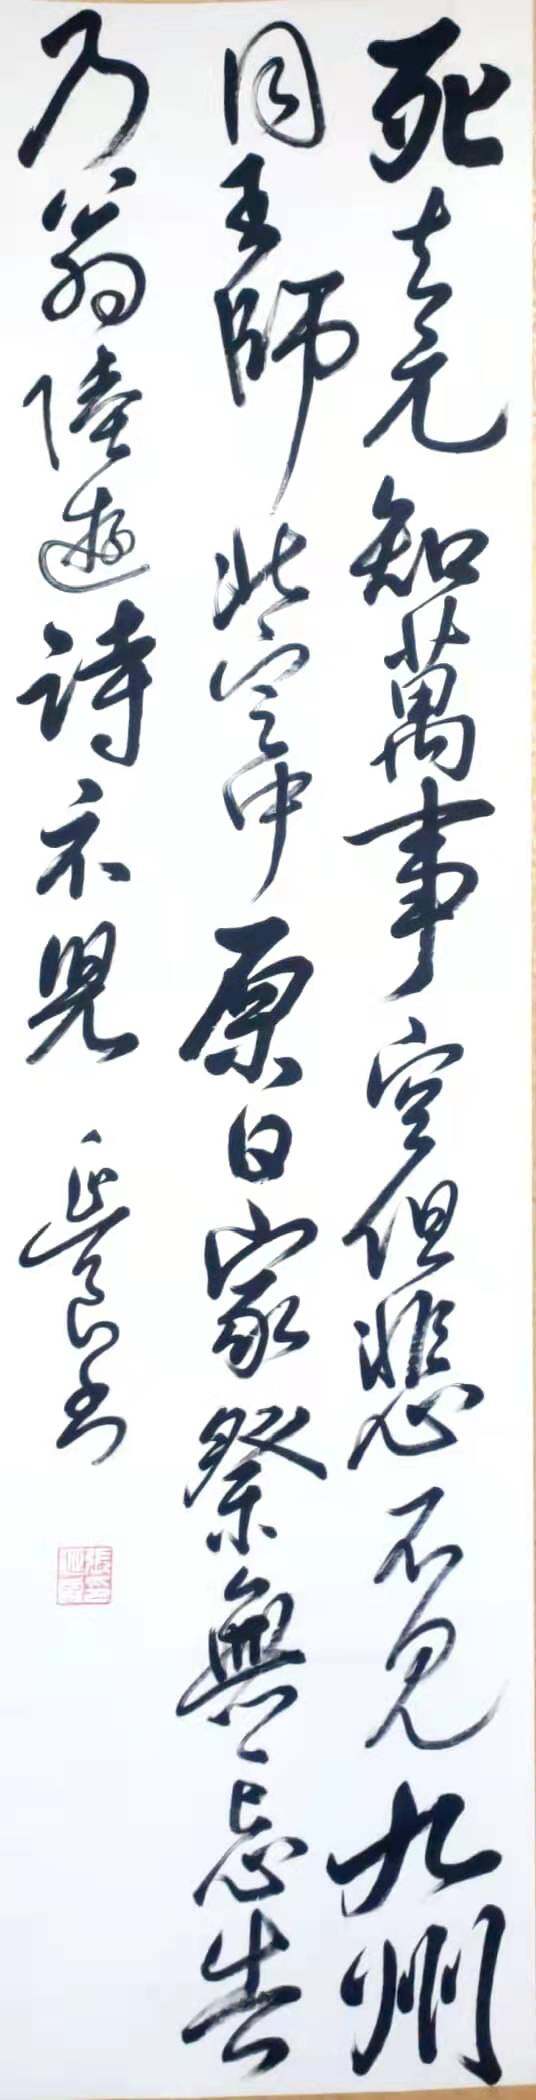 死去元知萬事空但悲不見九州
同王師北定中原日家祭無忘告
乃翁陸遊詩示兒